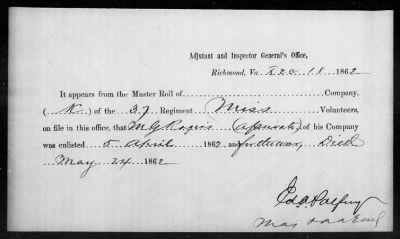 Adjutant and Inspector General's Office,
Richmond, Va. 18 1862
It appears from the Muster Roll of Company,
(K) of the 37 Regiment Miss Volunteers,
on file in this office, that M G Rogers (a private) of his Company
was enlisted 5 April 1862 and for the war, Died
May 24 1862
Ed. A. Palfrey